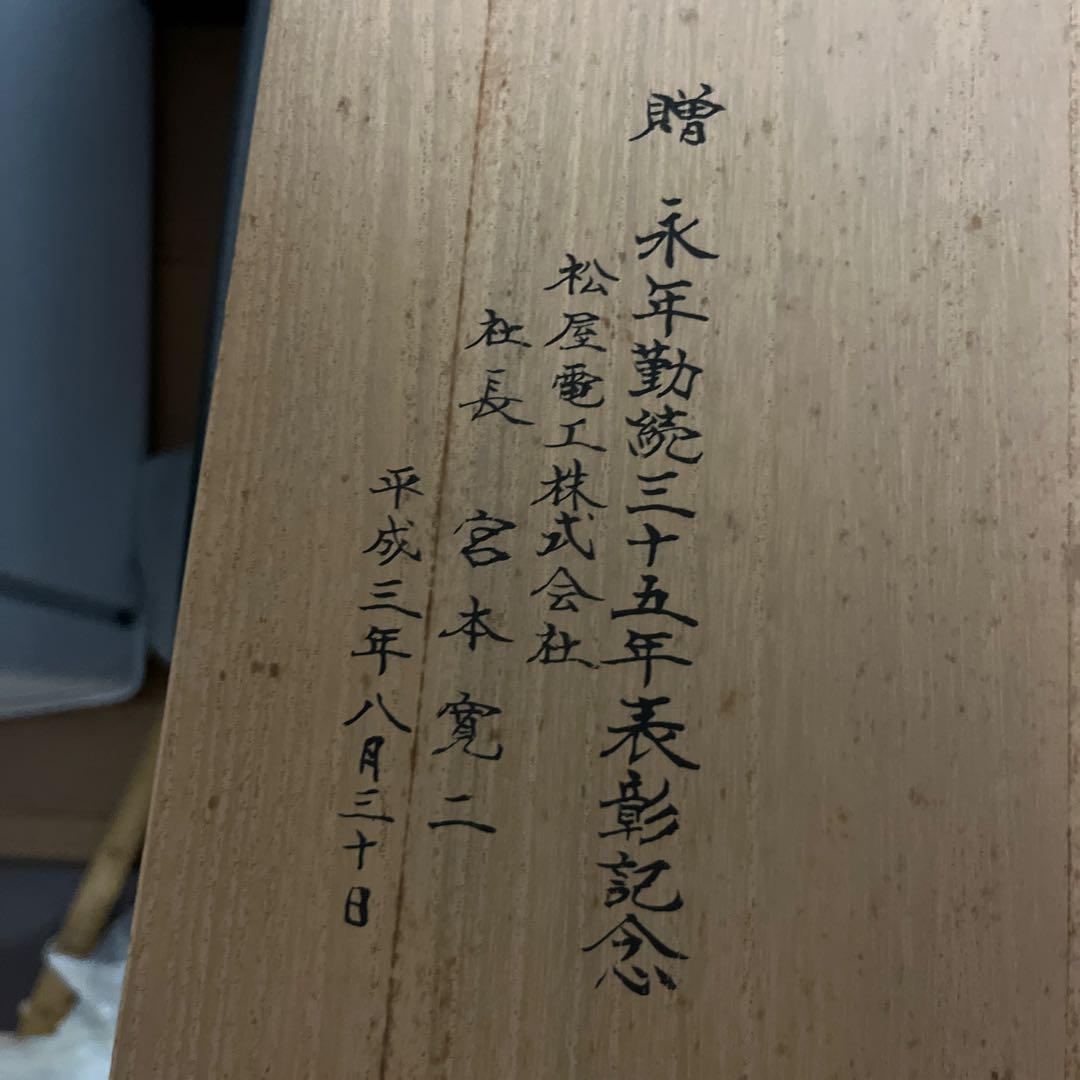 贈 永年勤続三十五年表彰記念
松屋電工株式会社
社長 宮本寛二
平成三年八月三十日